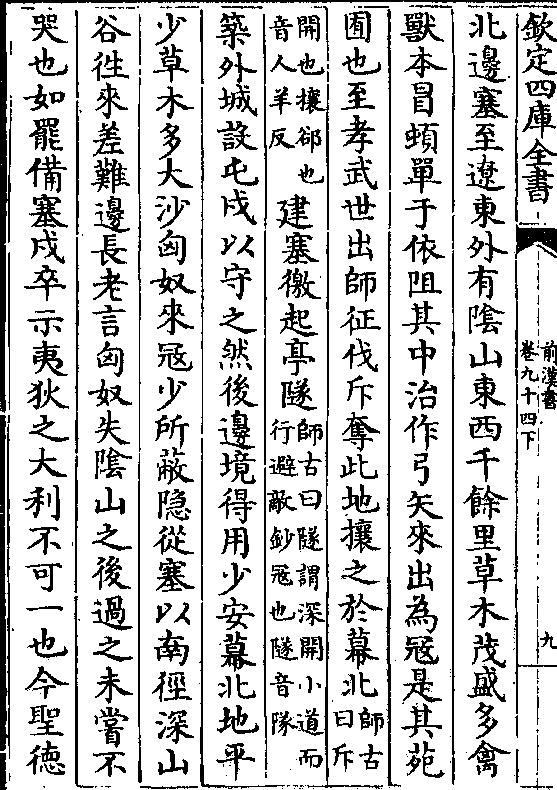 欽定四庫全書
前漢書
卷九十四下
九
北邊塞至遼東外有陰山東西千餘里草木茂盛多禽
獸本冒頓單于依阻其中治作弓矢來出為冦是其苑
囿也至孝武世出師征伐斥奪此地攘之於幕北師古曰斥
開也攘郤也音人羊反建塞徼起亭隧師古曰隧謂深開小道而行避敵鈔冦也隧音隊
築外城設屯戍以守之然後邊境得用少安幕北地平
少草木多大沙匈奴來冦少所蔽隐從塞以南徑深山
谷徃來差難邊長老言匈奴失陰山之後過之未嘗不
哭也如罷備塞戍卒示夷狄之大利不可一也今聖德